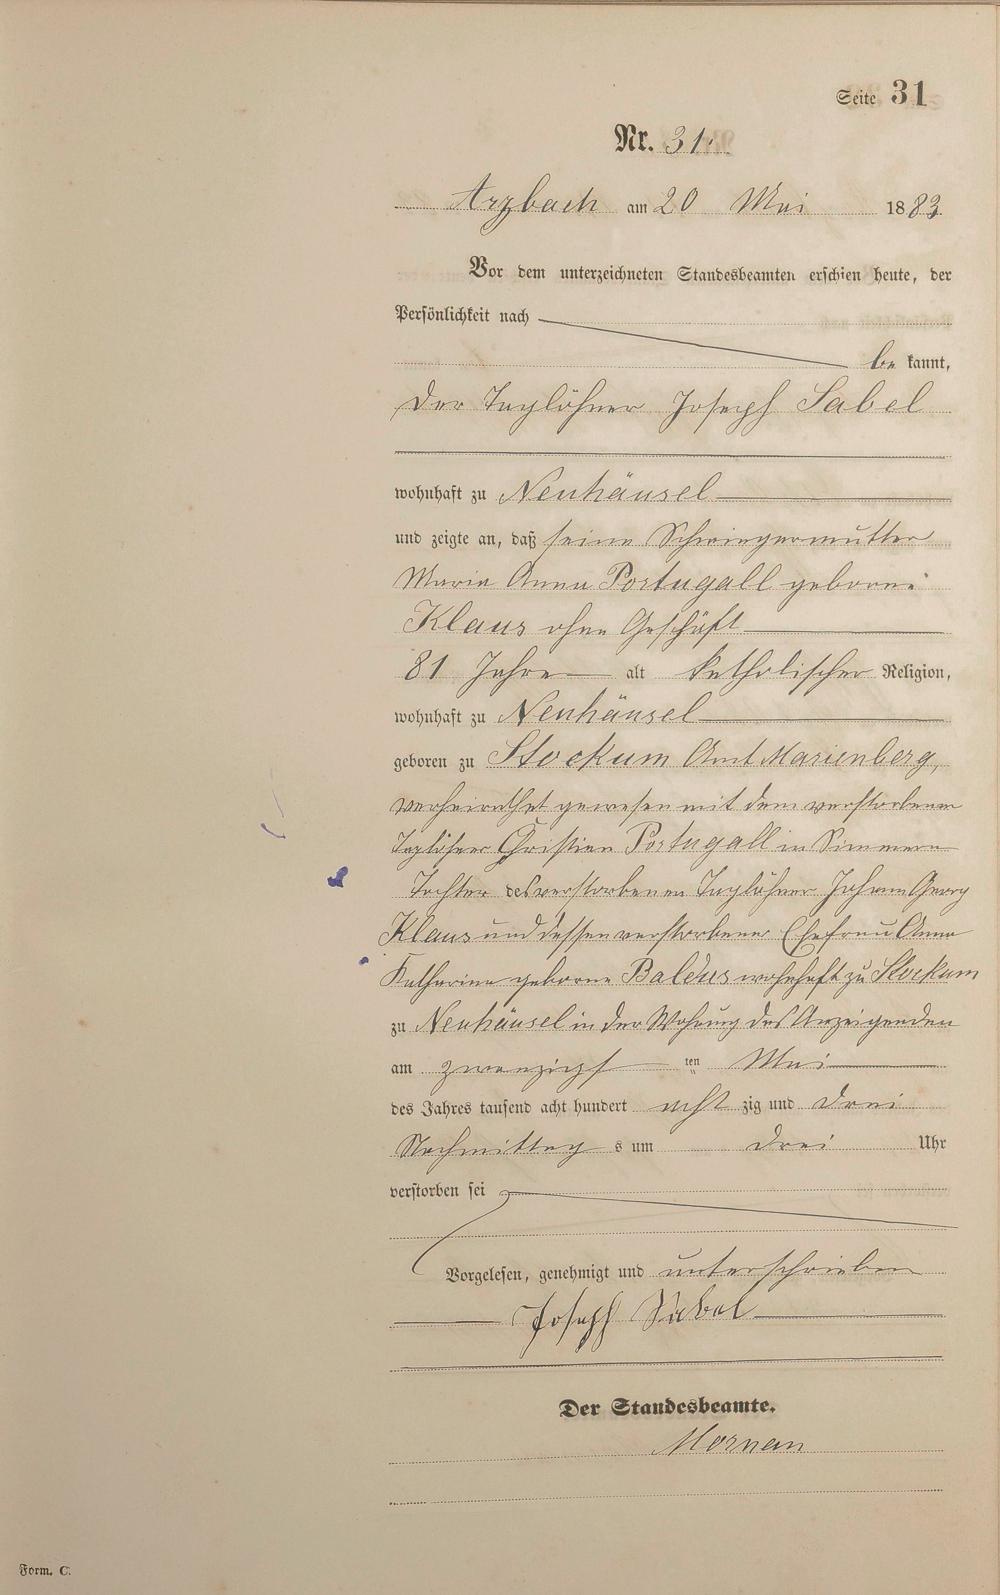 Seite 31
Nr. 31.
Arzbach am 20 Mai 1883
Vor dem unterzeichneten Standesbeamten erschien heute, der
Persönlichkeit nach
be kannt,
der Taglöhner Joseph Sabel
wohnhaft zu Neuhäusel
und zeigte an, daß seine Schwiegermutter
Maria Anna Portugall geborne
Klaus ohne Geschäft
81 Jahre alt katholischer Religion,
wohnhaft zu Neuhäusel
geboren zu Stockum Amt Marienberg,
verheirathet gewesen mit dem verstorbenen
Taglöhner Christian Portugall in Simmern
Tochter des verstorbenen Taglöhner Johann Georg
Klaus und dessen verstorbener Ehefrau Anna
Katharina geborne Baldus wohnhaft zu Stockum
zu Neuhäusel in der Wohnung des Anzeigenden
am zwanzigsten Mai
des Jahres tausend acht hundert acht zig und drei
Nachmittag s um drei Uhr
verstorben sei
Vorgelesen, genehmigt und unterschrieben
Joseph Sabel
Der Standesbeamte.
Form. C.